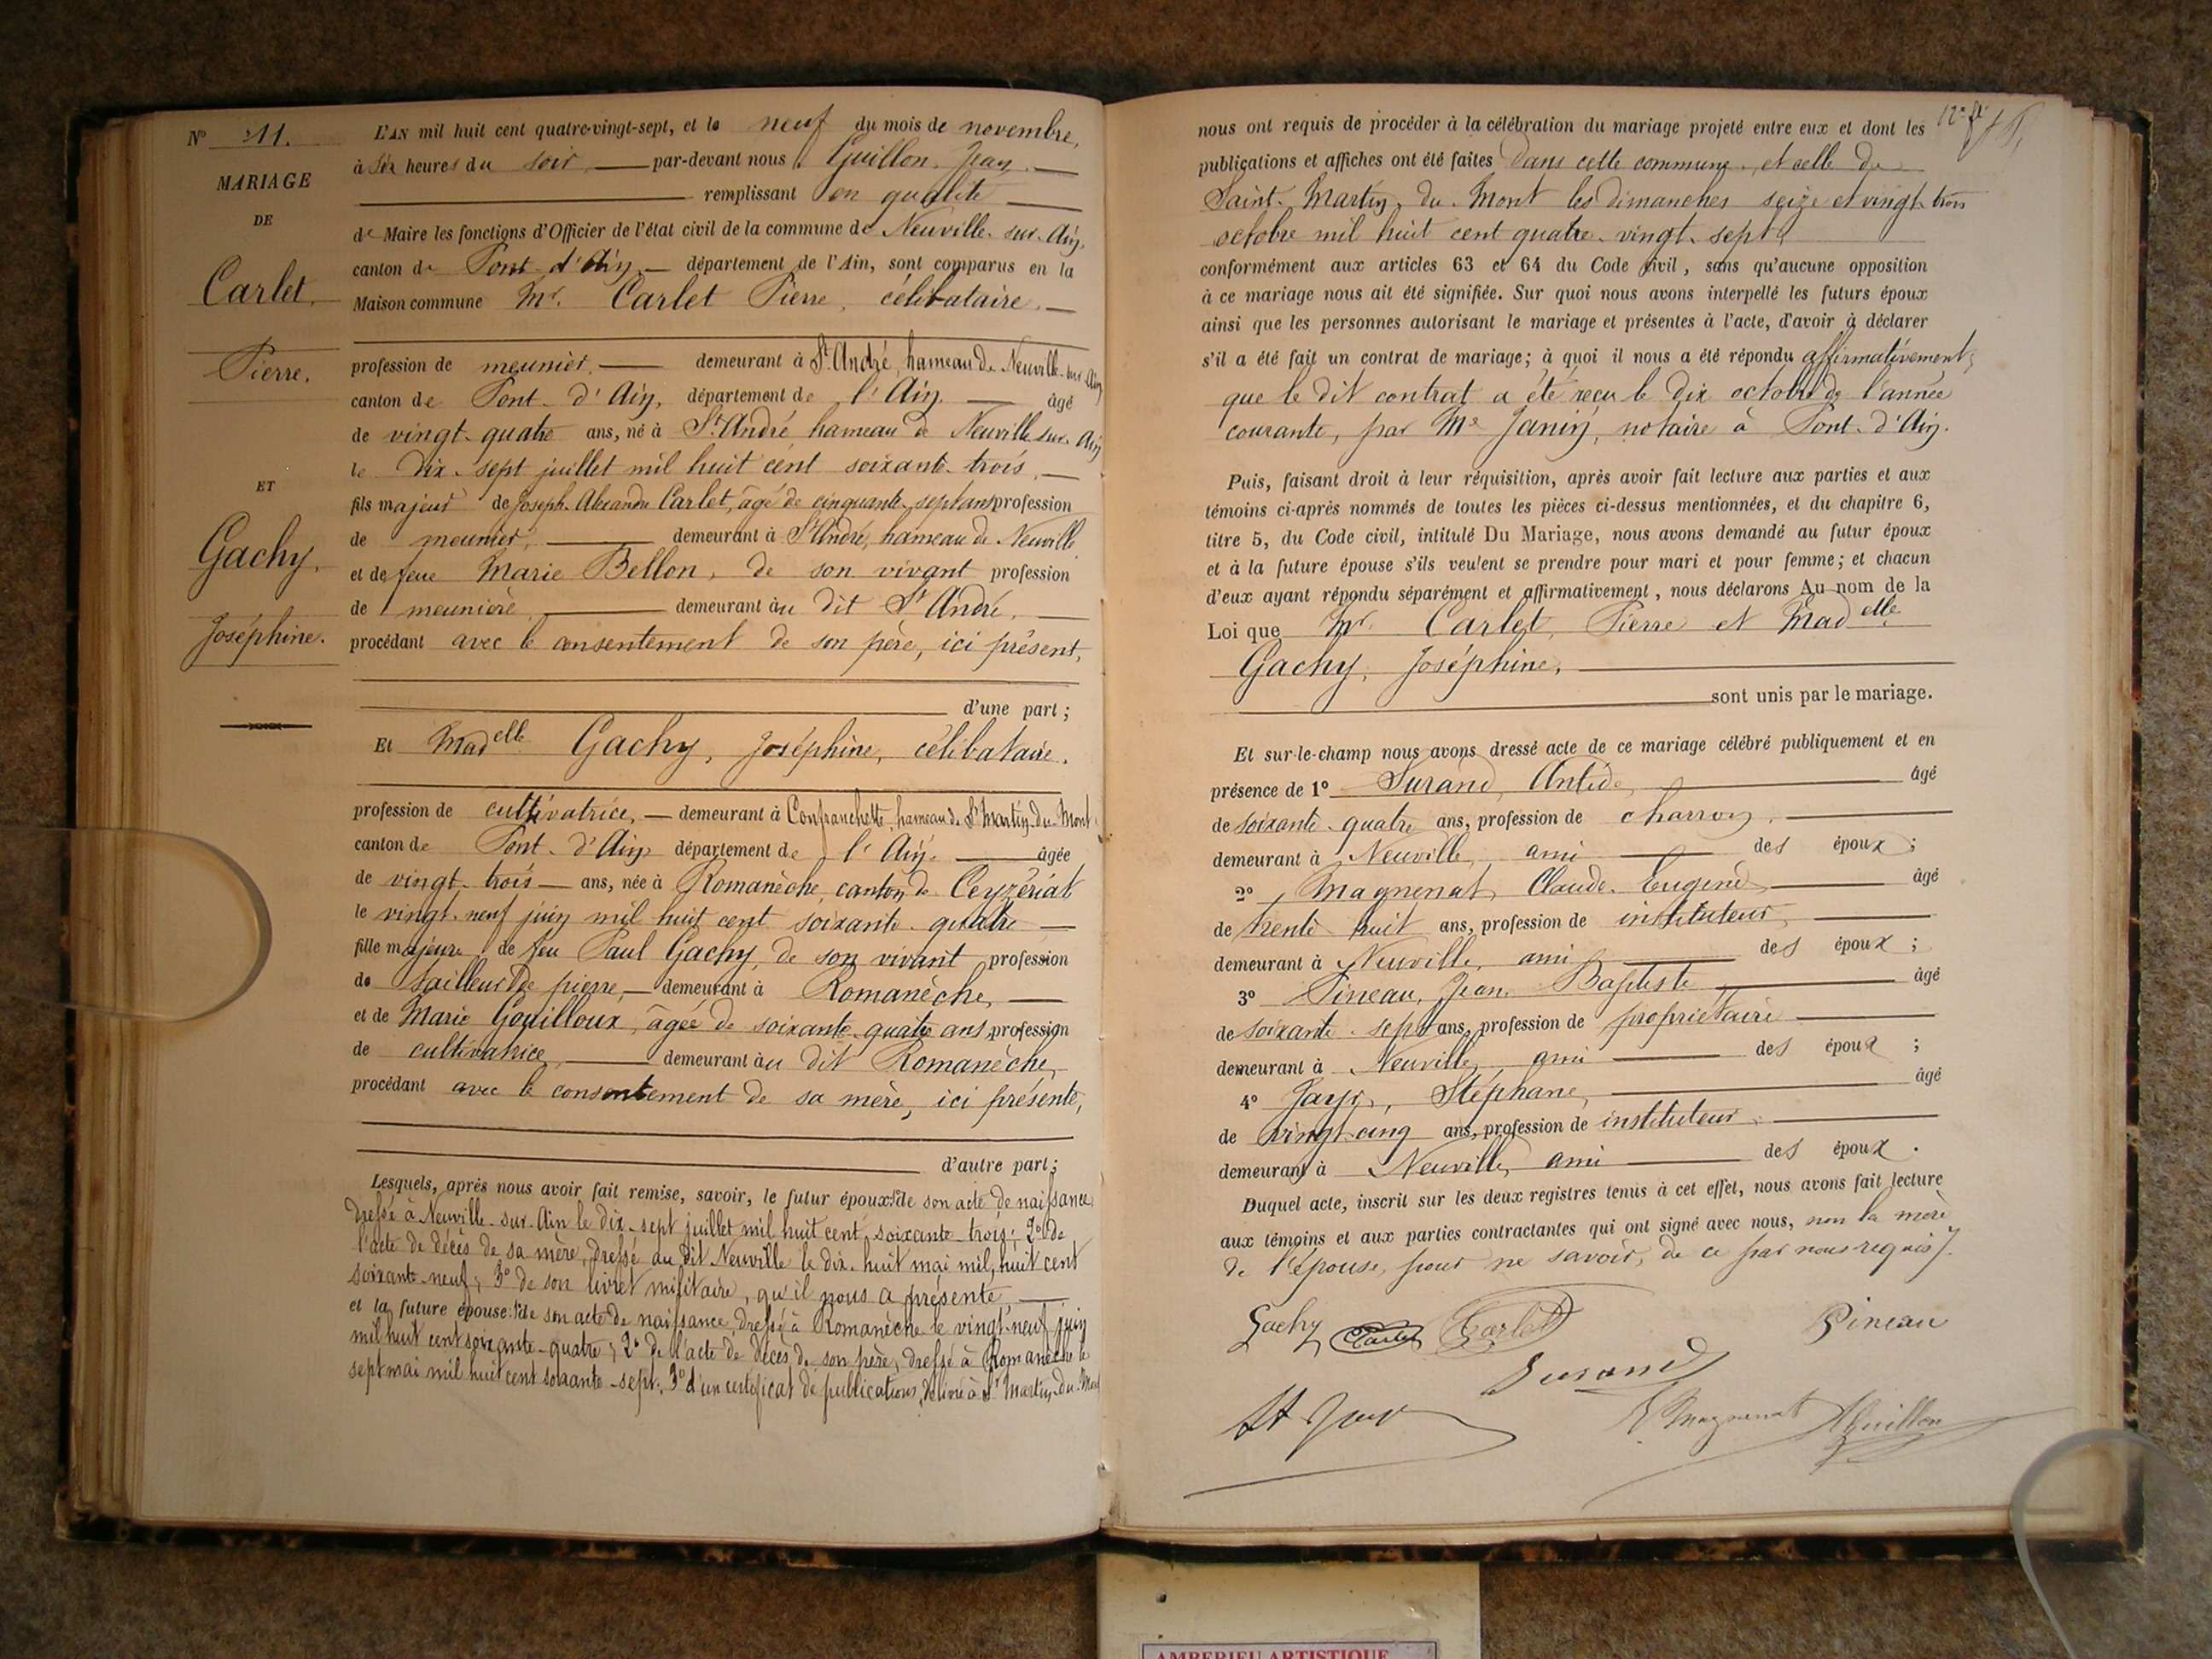 N° 11.
MARIAGE
DE
Carlet,
Pierre.
ET
Gachy,
Joséphine.
L'AN mil huit cent quatre-vingt-sept, et le neuf du mois de novembre,
à six heures du soir, par-devant nous Guillon Jean
remplissant en qualité
de Maire les fonctions d'Officier de l'état civil de la commune de Neuville-sur-Ain,
canton de Pont-d'Ain, département de l'Ain, sont comparus en la
Maison commune Mr. Carlet Pierre, célibataire,
profession de meunier, demeurant à St André, hameau de Neuville-sur-Ain
canton de Pont-d'Ain, département de l'Ain. âgé
de vingt-quatre ans, né à St André, hameau de Neuville sur-Ain
le dix-sept juillet mil huit cent soixante-trois,
fils majeur de Joseph-Alexandre Carlet, âgé de cinquante-sept ans profession
de meunier, demeurant à St André, hameau de Neuville
et de feue Marie Bellon, de son vivant profession
de meunière, demeurant au dit St André,
procédant avec le consentement de son père, ici présent,
d'une part;
Et Madelle Gachy, Joséphine, célibataire,
profession de cultivatrice, demeurant à Confranchette, hameau de St Martin-du-Mont
canton de Pont-d'Ain département de l'Ain. âgée
de vingt-trois ans, née à Romanèche, canton de Ceyzériat
le vingt-neuf juin mil huit cent soixante-quatre
fille majeure de feu Paul Gachy, de son vivant profession
de tailleur de pierre, demeurant à Romanèche,
et de Marie Gouilloux, âgée de soixante-quatre ans, profession
de cultivatrice, demeurant au dit Romanèche,
procédant avec le consentement de sa mère, ici présente,
d'autre part;
Lesquels, après nous avoir fait remise, savoir, le futur époux: 1° de son acte de naissance
dressé à Neuville-sur-Ain le dix-sept juillet mil huit cent soixante-trois; 2° de
l'acte de décès de sa mère, dressé au dit Neuville le dix-huit mai mil huit cent
soixante-neuf; 3° de son livret militaire, qu'il nous a présenté,
et la future épouse: 1° de son acte de naissance, dressé à Romanèche le vingt-neuf juin
mil huit cent soixante-quatre; 2° de l'acte de décès de son père, dressé à Romanèche le
sept mai mil huit cent soixante-sept; 3° d'un certificat de publications, délivré à St Martin-du-Mont
nous ont requis de procéder à la célébration du mariage projeté entre eux et dont les
publications et affiches ont été faites dans cette commune, et celle de
Saint-Martin-du-Mont les dimanches seize et vingt-trois
octobre mil huit cent quatre-vingt-sept,
conformément aux articles 63 et 64 du Code civil, sans qu'aucune opposition
à ce mariage nous ait été signifiée. Sur quoi nous avons interpellé les futurs époux
ainsi que les personnes autorisant le mariage et présentes à l'acte, d'avoir à déclarer
s'il a été fait un contrat de mariage; à quoi il nous a été répondu affirmativement,
que le dit contrat a été reçu le dix octobre de l'année
courante, par Me Janin, notaire à Pont-d'Ain.
Puis, faisant droit à leur réquisition, après avoir fait lecture aux parties et aux
témoins ci-après nommés de toutes les pièces ci-dessus mentionnées, et du chapitre 6,
titre 5, du Code civil, intitulé Du Mariage, nous avons demandé au futur époux
et à la future épouse s'ils veulent se prendre pour mari et pour femme; et chacun
d'eux ayant répondu séparément et affirmativement, nous déclarons Au nom de la
Loi que Mr. Carlet, Pierre et Madelle
Gachy, Joséphine,
sont unis par le mariage.
Et sur-le-champ nous avons dressé acte de ce mariage célébré publiquement et en
présence de 1° Surand, Antide, âgé
de soixante-quatre ans, profession de charron,
demeurant à Neuville, ami des époux;
2° Magnenat Claude-Eugène âgé
de trente huit ans, profession de instituteur,
demeurant à Neuville, ami des époux;
3° Pineau, Jean Baptiste âgé
de soixante-sept ans, profession de propriétaire
demeurant à Neuville, ami des époux;
4° Jayr, Stéphane, âgé
de vingt-cinq ans, profession de instituteur,
demeurant à Neuville, ami des époux.
Duquel acte, inscrit sur les deux registres tenus à cet effet, nous avons fait lecture
aux témoins et aux parties contractantes qui ont signé avec nous, non la mère
de l'épouse, pour ne savoir, de ce par nous requis.
Gachy Carlet Carlet Pineau
Surand
St Jayr E Magnenat JGuillon
AMBERIEU ARTISTIQUE